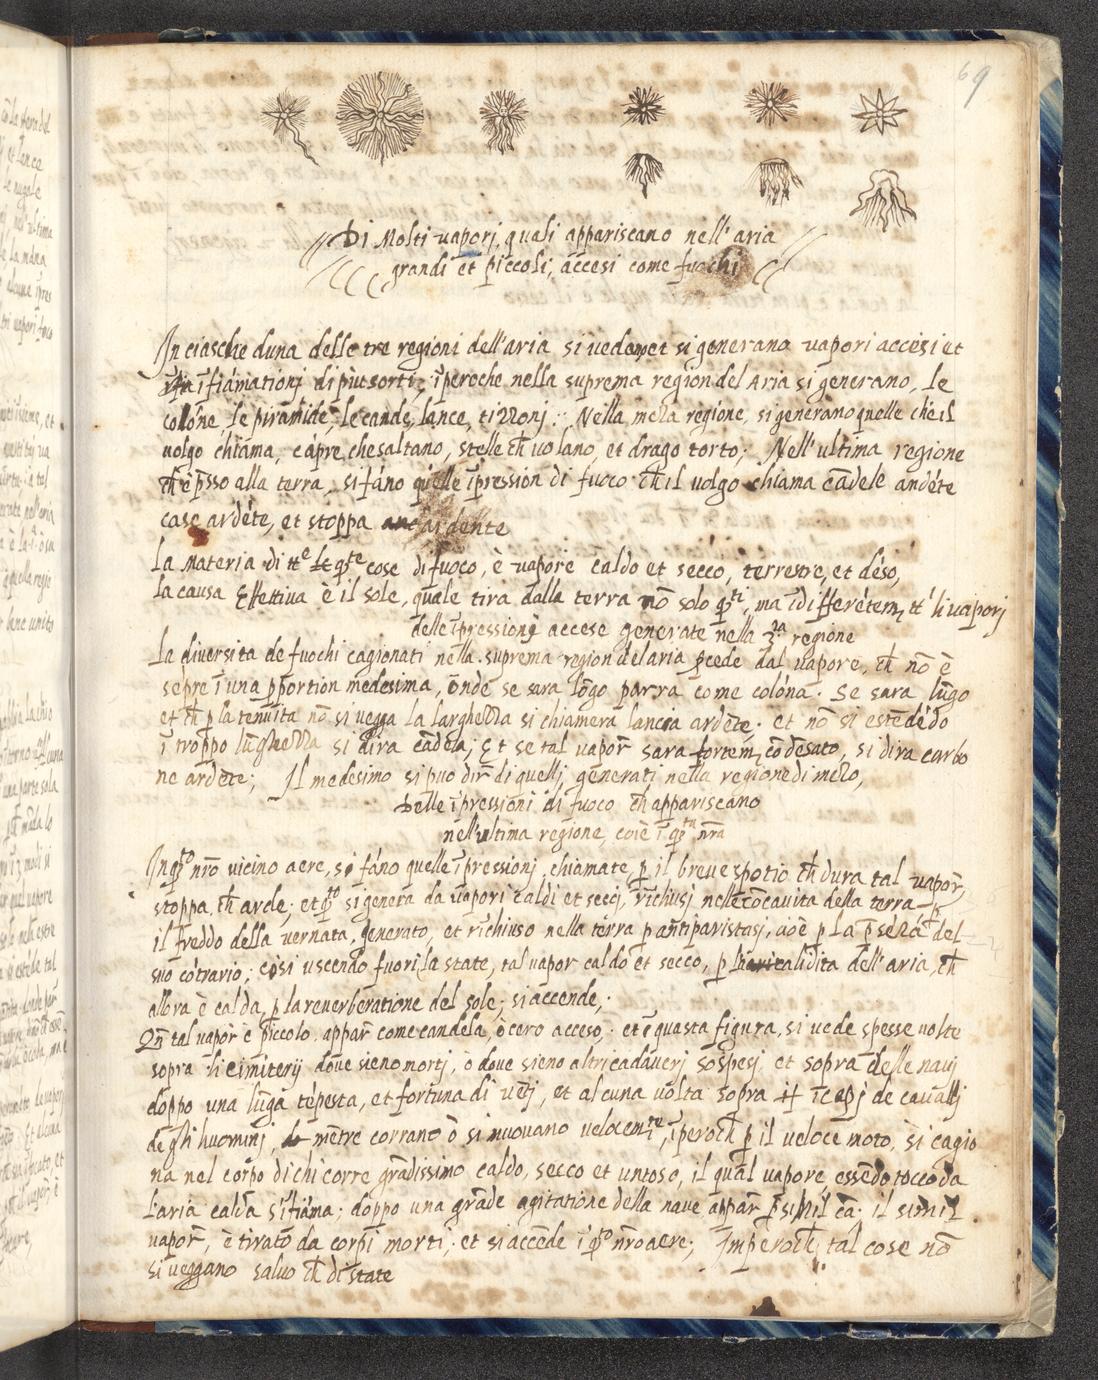 69
Di Molti vaporj, quali appariscano nell'aria
grandi et piccoli, accesi come fuochi
In ciasche duna delle tre regioni dell'aria si vedano et si generano vapori accesi et
īfiāmationj di piu sorti, īperoche nella suprema region del Aria si generano, le
colōne, le piramide, le cande, lance, tizzonj: Nella meza regione, si generano quelle che il
volgo chiama, capre che saltano, stelle cħ volano, et drago torto; Nell'ultima regione
cħ è p̄sso alla terra, si fāno quelle īpression di fuoco cħ il volgo chiama cādele ardēte
case ardēte, et stoppa ardente
La Materia di tt.e le q̄ste cose di fuoco, è vapore caldo et secco, terrestre, et dēso,
la causa Effettiva è il sole, quale tira dalla terra nō solo q̄sti, ma īdifferētem̄ tt' li vaporj
delle īpressionj accese generate nella 3.a regione
la diversita de fuochi cagionati nella suprema region del aria p̄cede dal vapore, cħ nō è
sēpre ī una p̄portion medesima, ōnde se sara lōgo parra come colōna. Se sara lūgo
et cħ p la tenuita nō si vegga la larghezza si chiamera lancia ardēte; et nō si estēdēdo
ī troppo lūghezza si dira cādela; Et se tal vapor̄ sara fortem̄ cōdēsato, si dira carbo
ne ardēte; Il medesimo si puo dir̄ di quellj, generati nella regione di mezo,
Delle īpressioni di fuoco cħ appariscano
nell'ultima regione, cioè ī q̄sta nr̄a
In q̄sto nr̄o vicino aere, si fāno quelle īpressionj, chiamate, p il breve spotio cħ dura tal vapor̄,
stoppa, cħ arde; et q̄sto si genera da vapori caldi et seccj, rīchiusj nelle cōcavita della terra
il freddo della vernata, generato, et rīchiuso nella tērra p antiparistasj, cioè p la p̄sēza del
suo cōtrario; cosi uscendo fuori la state, tal vapor caldo et secco, p la calidita dell'aria, cħ
allora è calda, p la reverberatione del sole; si accende;
Qn̄ tal vapor̄ è piccolo, appar̄ come candela, ò cero acceso; et ī quasta figura, si vede spesse volte
sopra li cimiterij dove sieno mortj, ò dove sieno altri cadaverj sospesj, et sopra delle navj
doppo una lūga tēpesta, et fortuna di vētj, et alcuna volta sopra de cavallj
de gli huominj, mētre corrano ò si muovano velocem̄te, īperocħ p il veloce moto, si cagio
na nel corpo di chi corre grādissimo caldo, secco et untoso, il qual vapore essēdo tocco da
l'aria calda s'īfiāma; doppo una grāde agitatione della nave appar̄ p simil cā. il simil
vapor̄, è tirato da corpi morti, et si accēde ī q̄sto nr̄o aere; Imperocħ, tal cose nō
si veggano salvo cħ di state